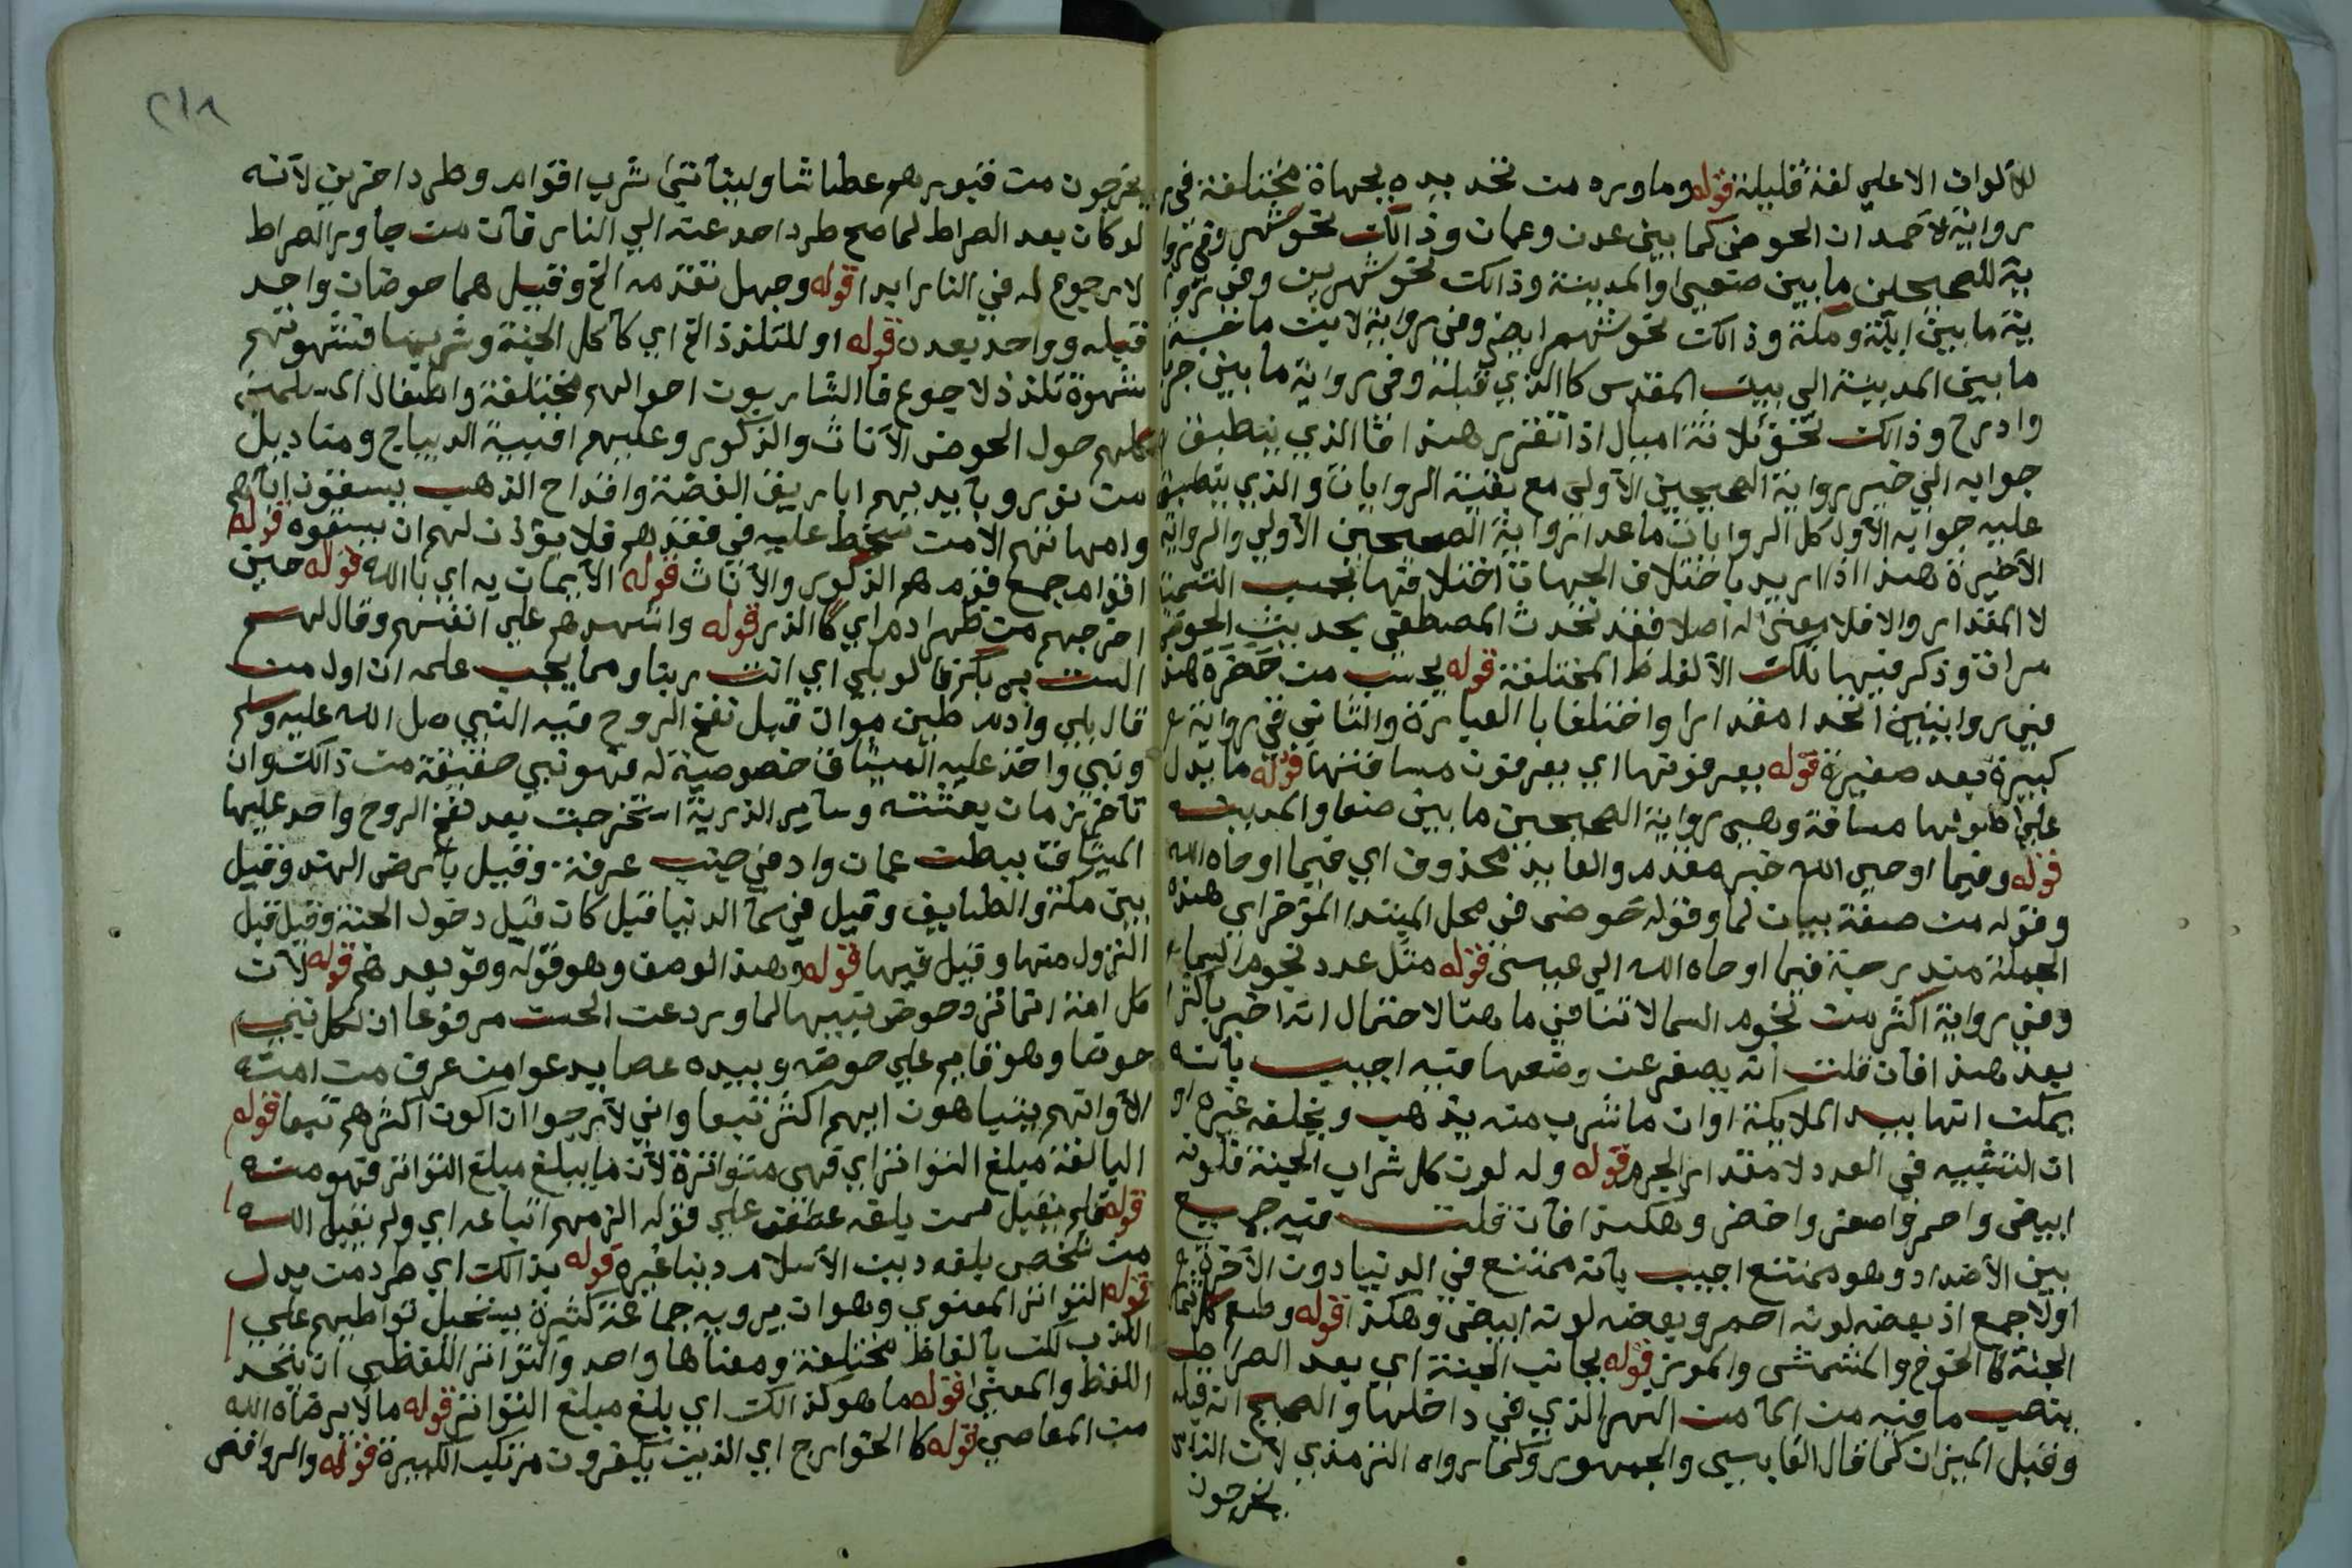 للألوان الا علي لغة قليلة قوله وما وره من تحديده بجهاة مختلفة في
رواية لأحمد ان الحوض كما بين عدن وعمان وذالك نحو شهر وفي روا
ية للصحيحين ما بين صنعي والمدينة وذالك نحو شهرين وفي روا
ية ما بين ايلة ومكة وذالك نحو شهر ايض وفي رواية لابن ماجه
ما بين المدينة الي بيت المقدس كالذي قبله وفي رواية ما بين جربا
وادرح وذالك نحو ثلاثة اميال اذا تقرر هذا فالذي ينطبق
جوابه الي خبر رواية الصحيحين الأولى مع بقية الروايات والذي ينطبق
عليه جوابه الأول كل الروايات ما عدا رواية الصحيحين الأولي والرواية
الأخيرة هذا اذا اريد باختلاف الجهات اختلافها بحسب التسمية
لا المقدار والا فلا معنى له اصلا فقد تحدث المصطفي بحديث الحوض
مرات وذكر فيها تلك الألفاظ المختلفة قوله بحسب من حضره هذا
في روايتين اتحدا مقدارا واختلفا بالعبارة والثاني في رواية
كبيرة بعد صغيرة قوله يعرفونها اي يعرفون مسافتها قوله ما يدل
علي اطولها مسافة وهي رواية الصحيحين ما بين صنعا والمدينة
قوله وفيما اوحي الله خبر مقدم والعايد محذوف اي فيما اوحاه الله
وقوله من صفة بيان لما وقوله حوضي في محل المبتدا المؤخر اي هذه
الجملة مندرجة فيما اوحاه الله الي عيسي قوله مثل عدد نجوم السماء
وفي رواية اكثر من نجوم السما لا تنافي ما هنا لاحتمال انه اخبر بأكثر
بعد هذا فان قلت انه يصغر عن وضعها فيه اجيب بانه
يمكن انها بيد الملايكة او ان ما شرب منه يذهب ويخلفه غيره او
ان التشبيه في العدد لا مقدار الجرم قوله وله لون كل شراب الجنة فلونه
ابيض واحمر واصفر واخضر وهكذا فان قلت فيه جميع
بين الأضداد وهو ممتنع اجيب بأنه ممتنع في الدنيا دون الآخرة
اولا جمع اذ بعضه لونه احمر وبعضه لونه ابيض وهكذا قوله وطعم كل ثمار
الجنة كالخوخ والمشمش والموز قوله بجانب الجنة اي بعد الصراط
ينصب ما فيه من الما من النهر الذي في داخلها والصحيح انه قبله
وقبل الميزان كما قال القابسي والجمهور وكما رواه الترمذي لأن الناس
يخرجون
٢١٨
يخرجون من قبورهم عطاشا وليتأتي شرب اقوام وطرد اخرين لأنه
لو كان بعد الصراط لما صح طرد احد عنه الي النار فان من جاوز الصراط
لا رجوع له في النار ابدا قوله وجهل تقدمه الخ وقيل هما حوضان واحد
قبله وواحد بعده قوله او للتلذذ الخ اي كأكل الجنة وشربها فشهوتهم
شهوة تلذذ لا جوع فالشاربون احوالهم مختلفة واطفال المسلمين
كلهم حول الحوض الأناث والذكور وعليهم اقبية الديباج ومناديل
من نور وبأيديهم اباريق الفضة واقداح الذهب يسقون اباهم
وامهاتهم الا من سخط عليه في فقدهم فلا يؤذن لهم ان يسقوه قوله
اقوام جمع قوم هم الذكور والأناث قوله الأيمان به اي بالله قوله حين
اخرجهم من ظهر ادم اي كالذر قوله واشهدهم علي انفسهم وقال لهم
الست بربكم قالو بلي اي انت ربنا ومما يجب علمه ان اول من
قال بلي وادم طين موات قبل نفخ الروح فيه النبي صل الله عليه وسلم
ونبي واخذ عليه الميثاق خصوصية له فهو نبي حقيقة من ذالك وان
تأخر زمان بعثته وساير الذرية استخرجت بعد نفخ الروح واخذ عليها
الميثاق ببطن عمان واد في جنب عرفة وقيل بأرض الهند وقيل
بين مكة والطايف وقيل في سما الدنيا قيل كان قبل دخول الجنة وقيل قبل
النزول منها وقيل فيها قوله وهذا الوصف وهو قوله وفو بعدهم قوله لأن
كل امة انما ترد حوض نبيها لما ورد عن الحسن مرفوعا ان لكل نبي
حوضا وهو قايم علي حوضه وبيده عصا يدعو من عرف من امته
الا وانهم يتباهون ايهم اكثر تبعا واني لأرجوا ان اكون اكثرهم تبعا قوله
البالغة مبلغ التواتر اي فهي متواترة لأن ما يبلغ مبلغ التواتر فهو منه
قوله فلم يقبل ممن يلقه عطف علي قوله الزمهم اتباعه اي ولم يقبل الله
من شخص يلقه دين الأسلام دينا غيره قوله بذالك اي طرد من بدل
قوله التواتر المعنوي وهو ان يرويه جماعة كثيرة يستحيل تواطيهم علي
الكذب لكن بألفاظ مختلفة ومعناها واحد والتواتر اللفظي ان يتحد
اللفظ والمعني قوله ما هو كذالك اي بلغ مبلغ التواتر قوله مالا يرضاه الله
من المعاصي قوله كالخوارج اي الذين يكفرون مرتكب الكبيرة قوله والروافض